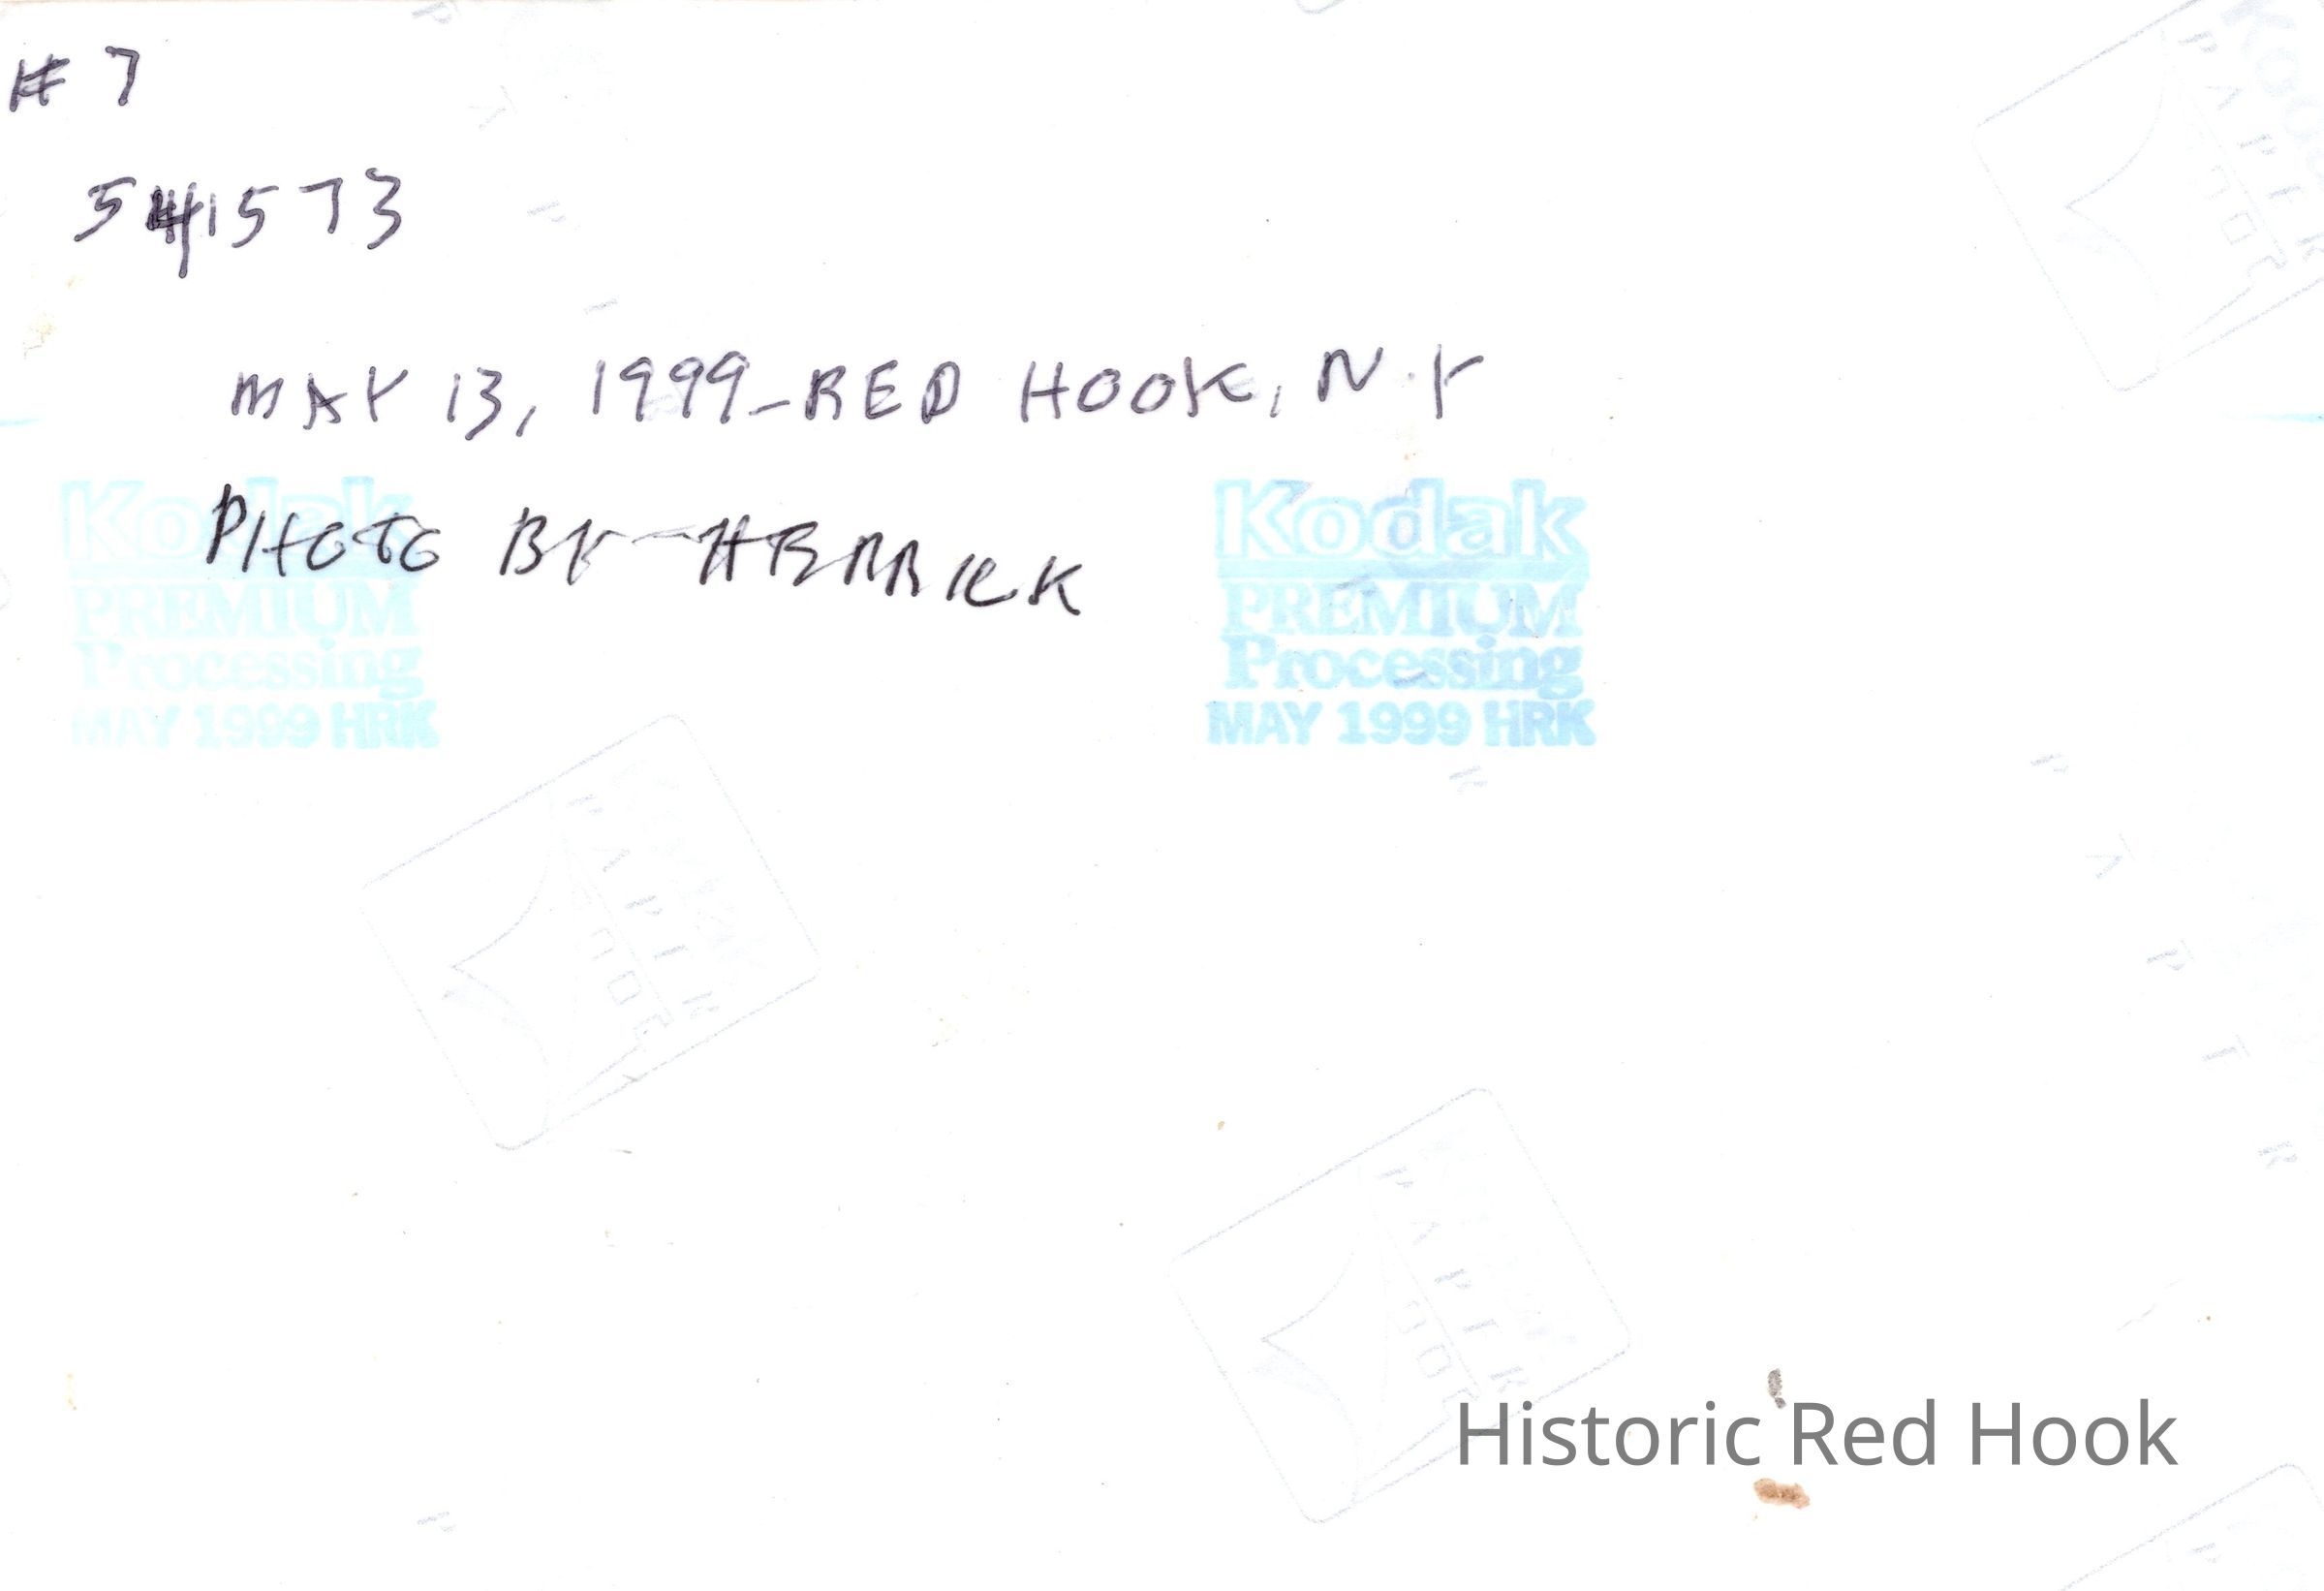 # 7
541573
MAY 13, 1999-RED HOOK, N.Y
PHOTO BY-HERRICK
Kodak
PREMIUM
Processing
MAY 1999 HRK
Kodak
PREMIUM
Processing
MAY 1999 HRK
PAPER
PAPER
PAPER
Historic Red Hook